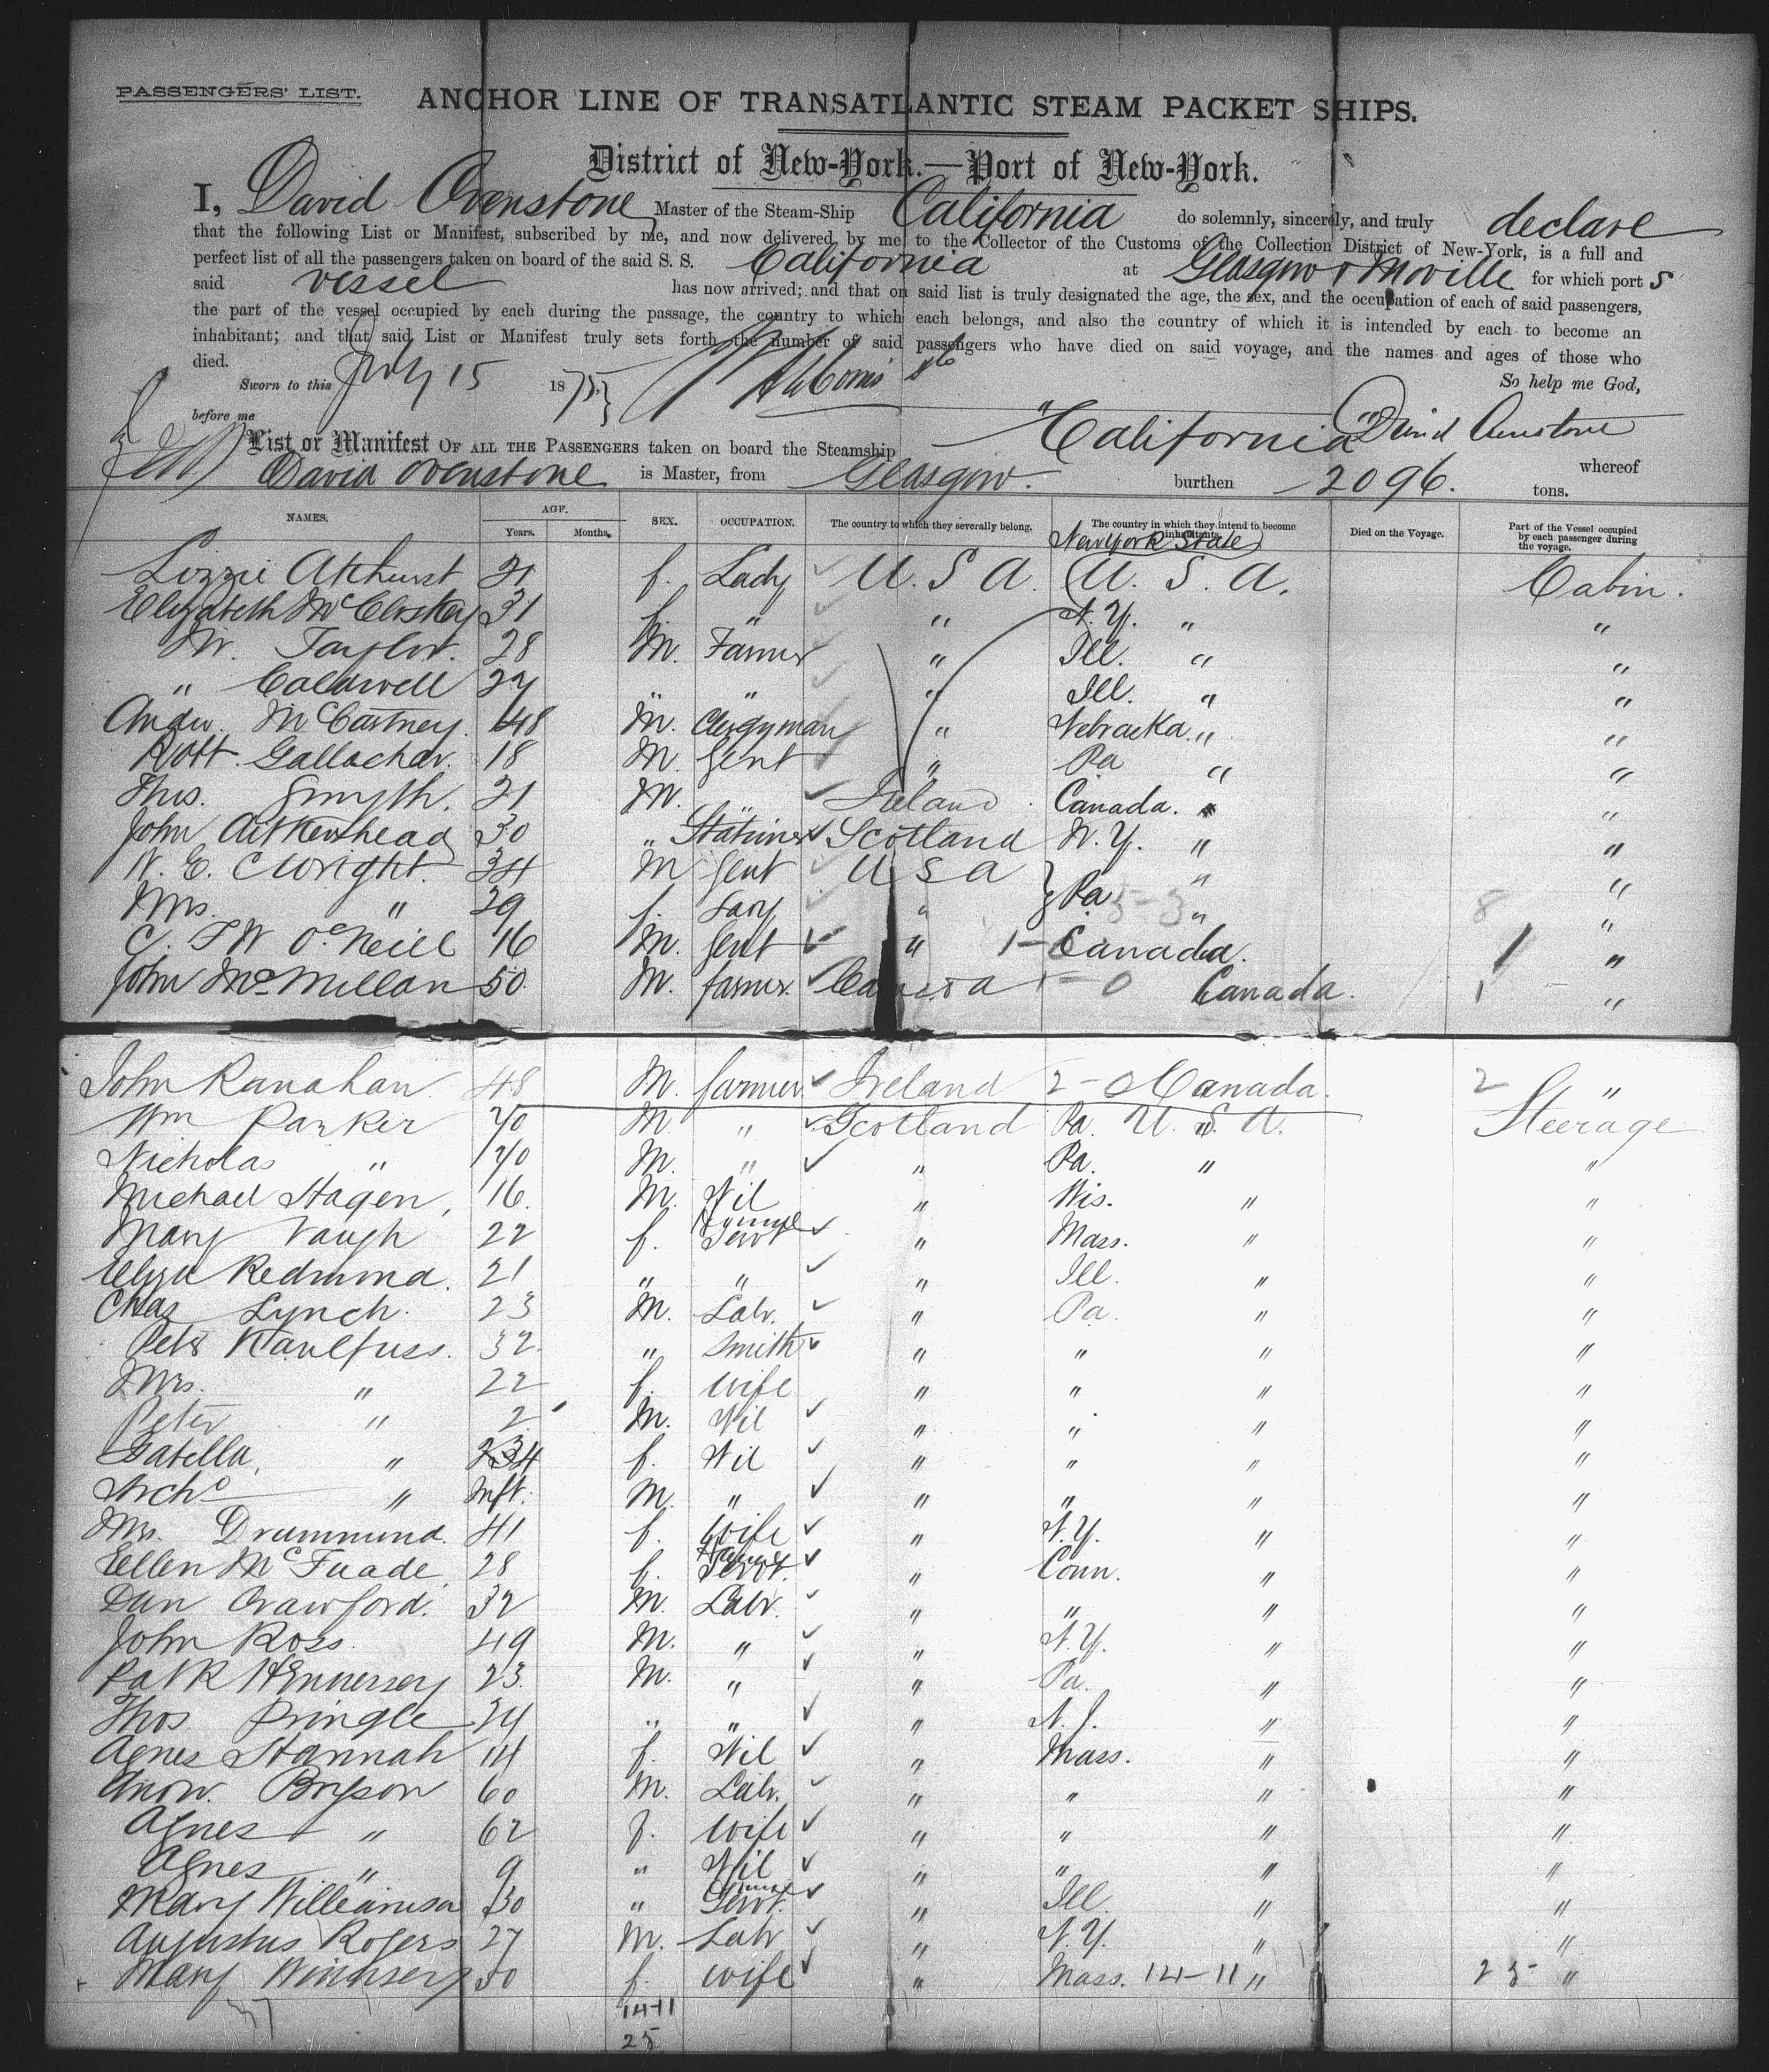 PASSENGERS' LIST.
ANCHOR LINE OF TRANSATLANTIC STEAM PACKET SHIPS.
District of New-York.—Port of New-York.
I, David Ovenstone Master of the Steam-Ship California do solemnly, sincerely, and truly declare
that the following List or Manifest, subscribed by me, and now delivered by me to the Collector of the Customs of the Collection District of New-York, is a full and
perfect list of all the passengers taken on board of the said S. S. California at Glasgow & Moville for which port s
said vessel has now arrived; and that on said list is truly designated the age, the sex, and the occupation of each of said passengers,
the part of the vessel occupied by each during the passage, the country to which each belongs, and also the country of which it is intended by each to become an
inhabitant; and that said List or Manifest truly sets forth the number of said passengers who have died on said voyage, and the names and ages of those who
died. So help me God,
Sworn to this July 15 1875
before me
List or Manifest OF ALL THE PASSENGERS taken on board the Steamship "California" whereof
David Ovenstone is Master, from Glasgow. burthen 2096. tons.
NAMES. AGE. Years. Months. SEX. OCCUPATION. The country to which they severally belong. The country in which they intend to become inhabitants. Died on the Voyage. Part of the Vessel occupied by each passenger during the voyage.
New York State
Lizzie Akhurst 21 f. Lady U. S A U. S. A. Cabin.
Elizabeth McCloskey 31 f. " " N.Y. " "
W. Taylor. 28 M. Farmer " Ill. " "
" Caldwell 27 " " " Ill. " "
Andw. McCartney. 48 M. Clergyman " Nebraska " "
Robt. Gallachar. 18 M. Gent " Pa " "
Thos. Smyth. 21 M. " Ireland Canada. "
John Aitkenhead 30 " Stationer Scotland N.Y. " "
W. E. C Wright. 34 M Gent U S A Pa " "
Mrs. " 29 f. Lady " " "
C. F W O'Neill 16 M. Gent " 1- Canada. 1 "
John McMillan 50. M. farmer. Canada 1-0 Canada. 1 "
John Ranahan 48 M. farmer. Ireland 2-0 Canada. 2 "
Wm Parker 40 M. " Scotland Pa. U. S. A. Steerage
Nicholas " 40 M. " " Pa. " "
Michael Hagen, 16. M. Nil " Wis. " "
Mary Vaugh 22 f. Servt " Mass. " "
Eliza Redmond. 21 " " " Ill. " "
Chas Lynch. 23 M. Labr. " Pa. " "
Petr Kaulfuss. 32. " Smith " " " "
Mrs. " 22 f. wife " " " "
Peter " 2 M. Nil " " " "
Isabella, " f. Nil " " " "
Archd " Inft. M. " " " " "
Mrs. Drummond. 41 f. wife " N.Y. " "
Ellen McFuade. 28 f. Servt. " Conn. " "
Dan Crawford. 32 M. Labr. " " " "
John Ross. 49 M. " " N.Y. " "
Patk Hennersey 23. M. " " Pa. " "
Thos Pringle 24 " " " N.J. " "
Agnes Hannah 14 f. Nil " Mass. " "
Andw. Bryson 60 M. Labr. " " " "
Agnes " 62 f. wife " " " "
Agnes " 9 " Nil " " " "
Mary Williamson 30 " Servt. " Ill. " "
Augustus Rogers 27 M. Labr " N.Y. " "
Mary 30 f. wife " Mass. 14-11 " 25 "
14-11
25